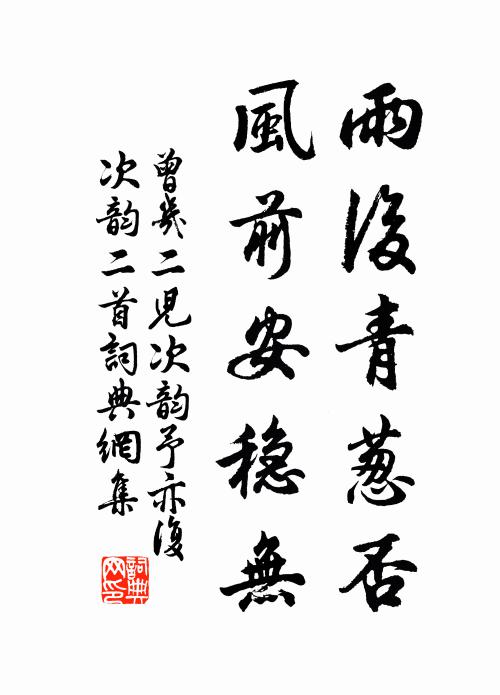 雨後青葱否
風前安穩無
曾幾二児次韵予亦復
次韵二首詞典網集
詞典
网印